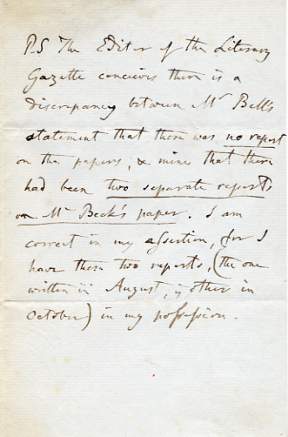 P.S The Editor of the Literary
Gazette conceives there is a
discrepancy between Mr Bell's
statement that there was no report
on the papers, & mine that there
had been two separate reports
on Mr Beck's paper. I am
correct in my assertion, for I
have these two reports, (the one
written in August, ye other in
October) in my possession.